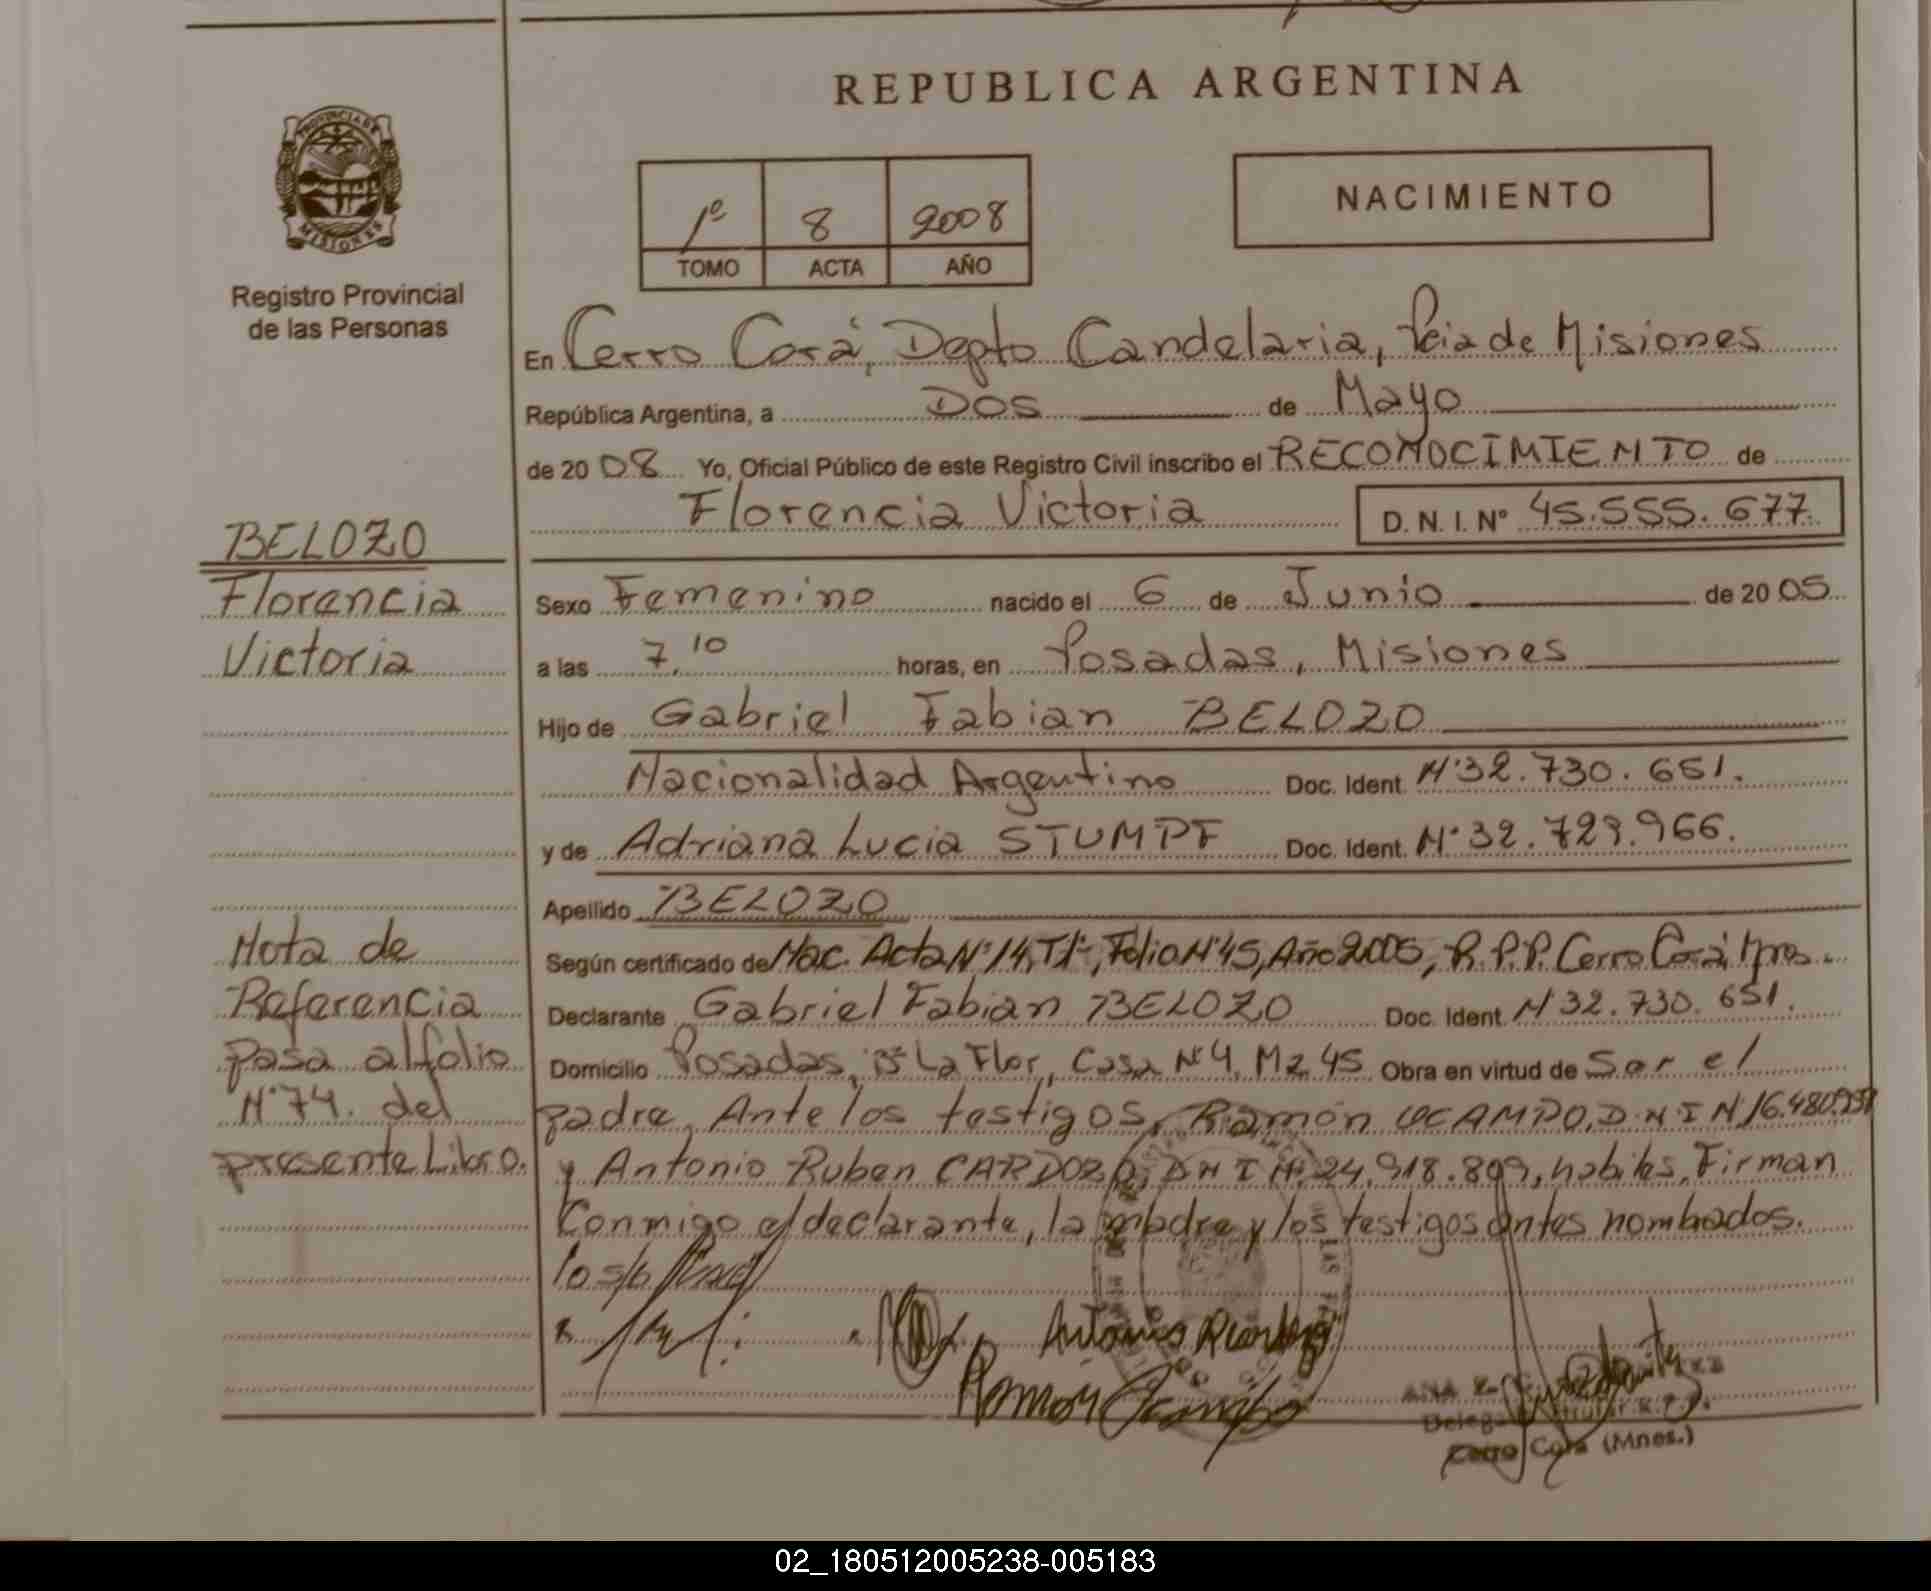 REPUBLICA ARGENTINA
PROVINCIA DE
MISIONES
Registro Provincial
de las Personas
1º 8 2008
TOMO ACTA AÑO
NACIMIENTO
En Cerro Corá, Depto Candelaria, Pcia de Misiones
República Argentina, a DOS de Mayo
de 2008 Yo, Oficial Público de este Registro Civil inscribo el RECONOCIMIENTO de
Florencia Victoria D.N.I. Nº 45.555.677
BELOZO
Florencia
Victoria
Sexo Femenino nacido el 6 de Junio de 2005
a las 7,10 horas, en Posadas, Misiones
Hijo de Gabriel Fabian BELOZO
Nacionalidad Argentino Doc. Ident. Nº 32.730.651.
y de Adriana Lucia STUMPF Doc. Ident. Nº 32.729.966.
Apellido BELOZO
Según certificado de Nac. Acta Nº 14, Tº 1º, Folio Nº 45, Año 2005, R.P.P. Cerro Corá, Mnes.
Declarante Gabriel Fabian BELOZO Doc. Ident. Nº 32.730.651.
Domicilio Posadas, Bº La Flor, Casa Nº 4, Mz 45 Obra en virtud de Ser el
padre, Ante los testigos, Ramón OCAMPO, D.N.I. Nº 16.480.
y Antonio Ruben CARDOZO, DNI Nº 24.918.809, habiles, Firman
Conmigo el declarante, la madre y los testigos antes nombados.
Nota de
Referencia
pasa al folio
Nº 74. del
presente Libro.
Antonio
Ramón Ocampo
ANA
Cerro Corá (Mnes.)
02_180512005238-005183